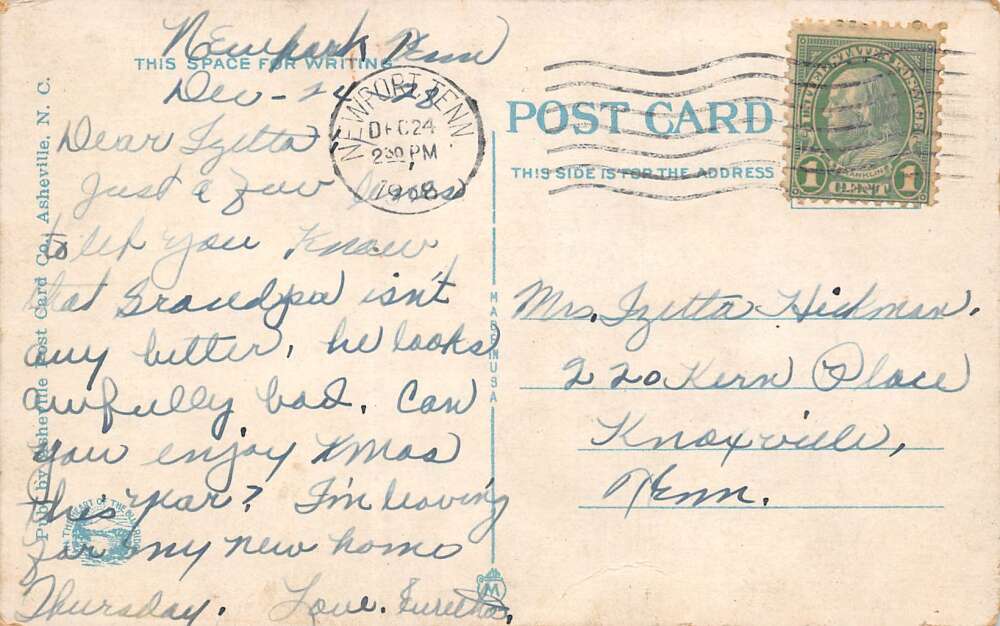 Newport, Tenn
THIS SPACE FOR WRITING
Dec - 24 - 28
Dear Izetta
Just a few lines
to let you know
that Grandpa isn't
any better, he looks
awfully bad. Can
you enjoy Xmas
this year? I'm leaving
for my new home
Thursday. Love. Euretha.
Pub. by Asheville Post Card Co., Asheville, N. C.
NEWPORT, TENN
DEC 24
2 30 PM
MADE IN USA
M
POST CARD
THIS SIDE IS FOR THE ADDRESS
UNITED STATES POSTAGE
FRANKLIN
1 CENT 1
Mrs. Izetta Hickman.
220 Kern Place
Knoxville,
Tenn.